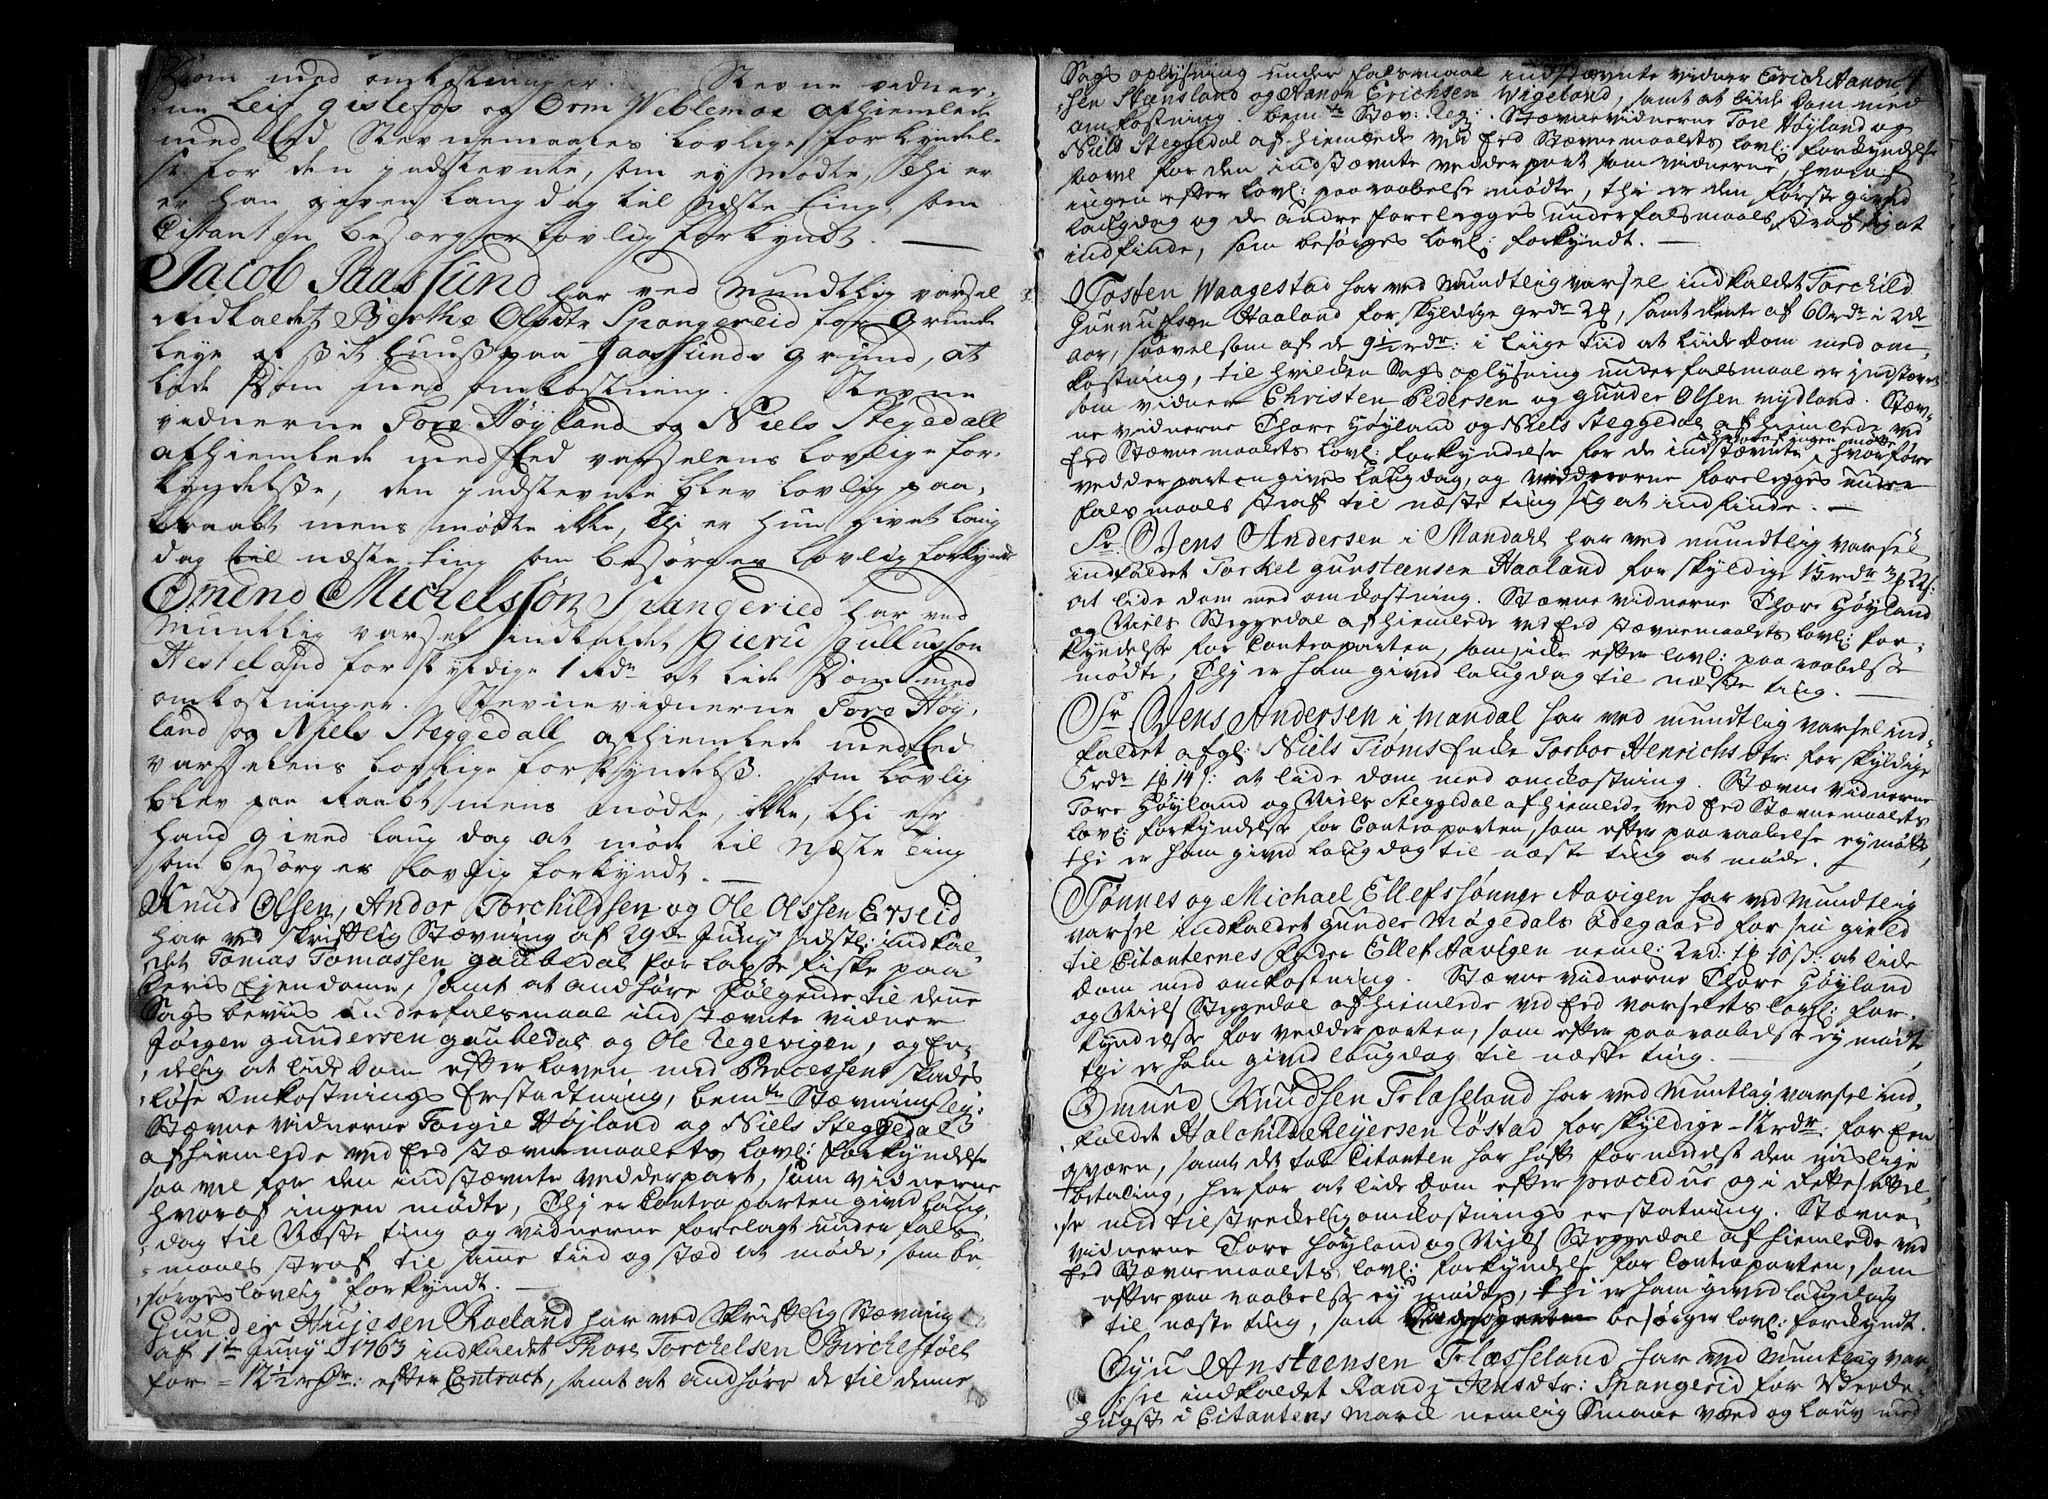 Dom med omkostninger. Stevne vidner,
ne Leif Gislefos og Orm Weblemoe afhiemlede
med Eed Stevnemaalets Lovlige forkyndel-
se for den indstevnte, som ey mødte, Thi er
er han given Laugdag til Neste Ting, som
Citanten besørger Lovlig forkyndt.
Jacob Jaassund har ved Mundtlig varsel
indkaldet Berthe Olsdtr Spangereid for Grunde
leye af sit Huus paa Jaassunds grund, at
lide Dom med omkostning. Stevne
vidnerne Tore Høyland og Niels Stegedall
afhiemlede med Eed varselens Lovlige for-
kyndelse, den indstevnte blev lovlig paa,
raabt mens mødte ikke, Thi er hun givet Laug
dag til næste Ting som besørges Lovlig forkyndt
Omund Michelssøn Spangeried har ved
Muntlig varsel indkaldet Gieru Gullussøn
Hesteland for skyldige 1 Rdr at lide Dom med
omkostninger. Stevnevidnerne Tore Høy,
land og Niels Steggedall afhiemlede med Eed
varselens Lovlige forkyndelse. som Lovlig
blev paa Raabt mens mødte, ikke, thi er
hand gived laug dag at møde til Næste Ting
som besørges Lovlig forkyndt.
Knud Olsen, Andor Torchildsen og Ole Olssen Erseid
har ved skriftlig Stævning af 29de Junij sidstl: indkal-
det Tomas Tomassen Gaubedal for Laxse fiske paa
deris Ejendome, samt at anhøre følgende til denne
Sags beviis under falsmaal indstævnte vidner
Jørgen Gundersen Gaubedal og Ole Regevigen, og En,
delig at lide Dom efter Loven med Processens skades
løse Omkostnings Erstadtning, bemte Stævning
Stævne vidnerne Torgie Højland og Niels Steggedal
afhiemlede ved Eed stævnemaalets lovl: forkyndelse
saa vel for den indstævnte vedderpart, som vidnerne
hvoraf ingen mødte, Thj er Contraparten givet laug,
dag til Næste ting og vidnerne forelagt under fals,
maals straf til samme tiid og stæd at møde, som be,
sørges lovlig forkyndt.
Gunder Aujesen Roeland har ved Skriftlig Stævning
af 1te Junij 1763 indkaldet Thore Torchelsen Birchestøel
for 12½ rdr: efter Contract, samt at anhøre de til denne
Sags oplysning under falsmaal indstævnte vidner Erich Aanon
sen Steensland og Aanon Erichsen Wigeland, samt at lide Dom med
omkostning. bemte Stæv: . Stævnevidnerne Tore Høyland og
Niels Steggedal afhiemlede ved Eed Stævnemaalets lovl: forkyndelse
saavel for den indstævnte vedderpart som vidnerne, hvoraf
ingen efter lovl: paaraabelse mødte, thi er den første gived
laugdag og de andre forelegges under falsmaals straf sig at
indfinde, som besørges lovl: forkyndt.
Tosten Waagestad har ved Mundtlig varsel indkaldet Torchild
Gunnufsen Haaland for skyldige 9 rdr 2, samt rente af 60 rdr i 2de
aar, saavelsom af de 9½ rdr: i liige tiid at lide Dom med om,
kostning, til hvilken Sags oplysning under falsmaal er indstævnt
som vidner Christen Pedersen og Gunder Olsen Mydland. Stæv-
ne vidnerne Thore Høyland og Niels Steggedal afhiemlede ved
Eed Stævnemaalets lovl: forkyndelse for de indstævnte, hvoraf ingen mødte hvorfore
vedderparten gives laugdag, og vidnerne forelegges under
falsmaals straf til næste ting sig at indfinde.
Sr Jens Andersen i Mandahl har ved mundtlig varsel
indkaldet Torkel Gunsteensen Haaland for skyldige 15 rdr 3 22
at lide dom med omkostning. Stævne vidnerne Thore Høyland
og Niels Steggedal afhiemlede ved Eed stævnemaalets lovl: for-
kyndelse for Contraparten, som icke efter lovl: paaraabelse
mødte, Thj er ham gived laugdag til næste ting.
Sr Jens Andersen i Mandal har ved mundtlig varsel ind-
kaldet afgl: Niels Tioms Enke Torbor Henrichsdtr: for skyldige
5 rdr 1 14 s: at lide dom med omkostning. Stævne vidnerne
Tore Høyland og Niels Steggedal afhiemlede ved Eed Stævnemaalets
lovl: forkyndelse for Contraparten, som efter paaraabelse ey mødte,
thi er ham gived laugdag til næste ting at møde.
Tønnes og Michael Ellefssønner Aavigen har ved Mundtlig
varsel indkaldet Gunder Møgedals Ødegaard for sin gield
til Citanternes Fader Ellef Aavigen neml: 2 rd: 1 10 s: at lide
Dom med omkostning. Stævne vidnerne Thore Høyland
og Niels Steggedal afhiemlede ved Eed varselets lovl: for-
kyndelse for vedderparten, som efter paaraabelse ey mødte,
thi er ham gived laugdag til næste ting.
Omund Knudsen Fladeland har ved Muntlig varsel ind,
kaldet Halchild Reyersen Røstad for skyldige 12 rdr: for Een
qværn, samt det tab Citanten har haft formedelst den mislige
betaling, herfor at lide Dom efter procedur og i Rettesættel,
se med tilstrekkelig omkostnings erstatning. Stævne-
vidnerne Tore Høyland og Niels Steggedal afhiemlede ved
Eed Stævnemaalets lovl: forkyndelse for Contraparten, som
efter paaraabelse ey mødte, thi er ham gived laugdag
til næste ting, som besørger lovl: forkyndt.
Gyu Ansteensen Flasseland har ved Muntlig var-
sel indkaldet Randi Jensdtr: Spangerid for Vrede,
hugst i Citantens Marck nemlig Smaae Væed og Løuv med